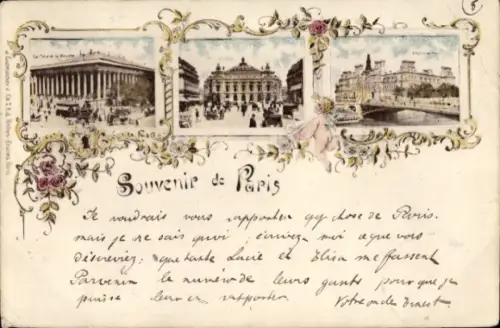 La Place de la Bourse
Souvenir de Paris
Je voudrais vous rapporter qq chose de Paris.
mais je ne sais quoi, écrivez moi ce que vous
désirerez; que tante Lucie et Elisa me fassent
Parvenir le numéro de leurs gants pour que je
puisse leur en rapporter Votre oncle Ernest